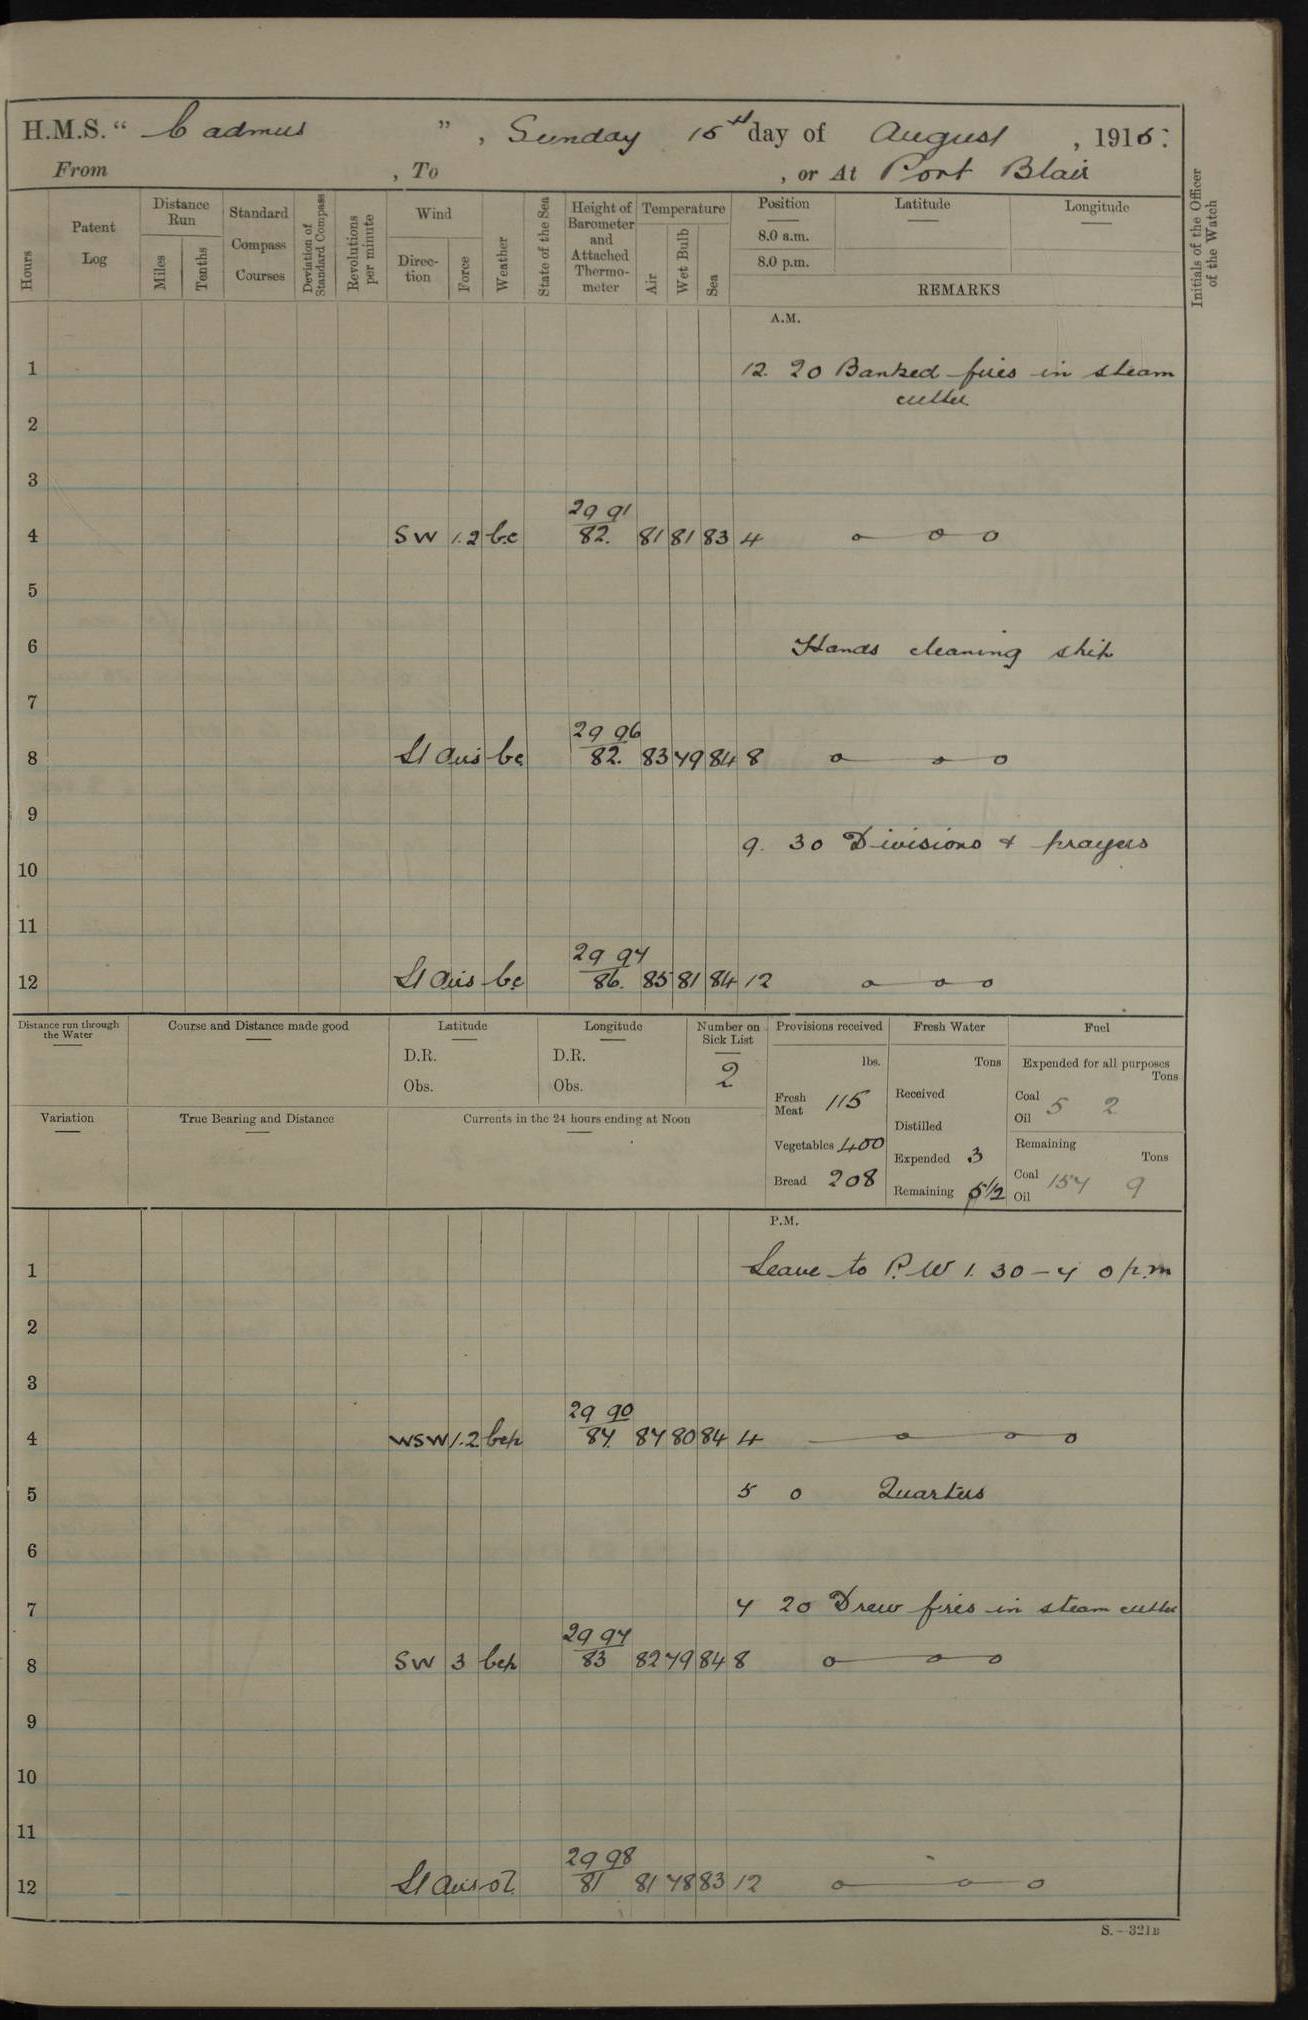 H.M.S. “ Cadmus ” , Sunday 15th day of August , 1915:
From , To , or At Port Blair
Hours
Patent Log
Distance Run
Miles
Tenths
Standard Compass Courses
Deviation of Standard Compass
Revolutions per minute
Wind
Direction
Force
Weather
State of the Sea
Height of Barometer and Attached Thermometer
Temperature
Air
Wet Bulb
Sea
Position
8.0 a.m.
8.0 p.m.
Latitude
Longitude
REMARKS
Initials of the Officer of the Watch
A.M.
1 12. 20 Banked fires in steam
cutter
2
3
29 91
4 SW 1.2 b.c 82. 81 81 83 4
5
6 Hands cleaning ship
7
29 96
8 Lt airs bc 82. 83 79 84 8
9
9. 30 Divisions & prayers
10
11
29 97
12 Lt airs bc 86. 85 81 84 12
Distance run through the Water
Course and Distance made good
Latitude
D.R.
Obs.
Longitude
D.R.
Obs.
Number on Sick List
2
Provisions received
lbs.
Fresh Meat 115
Vegetables 400
Bread 208
Fresh Water
Tons
Received
Distilled
Expended 3
Remaining 51/2
Fuel
Expended for all purposes
Tons
Coal 5 2
Oil
Remaining
Tons
Coal 157 9
Oil
Variation
True Bearing and Distance
Currents in the 24 hours ending at Noon
P.M.
1 Leave to P.W 1. 30 – 7 0 p.m
2
3
29 90
4 WSW 1.2 bcp 87. 87 80 84 4
5 5 0 Quarters
6
7 7 20 Drew fires in steam cutter
29 97
8 SW 3 bcp 83 82 79 84 8
9
10
11
29 98
12 Lt airs 81 81 78 83 12
S.–321B